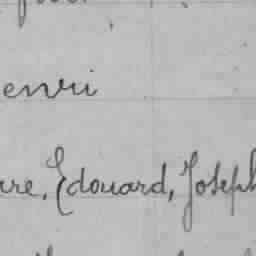 enri
re, Edouard, Joseph